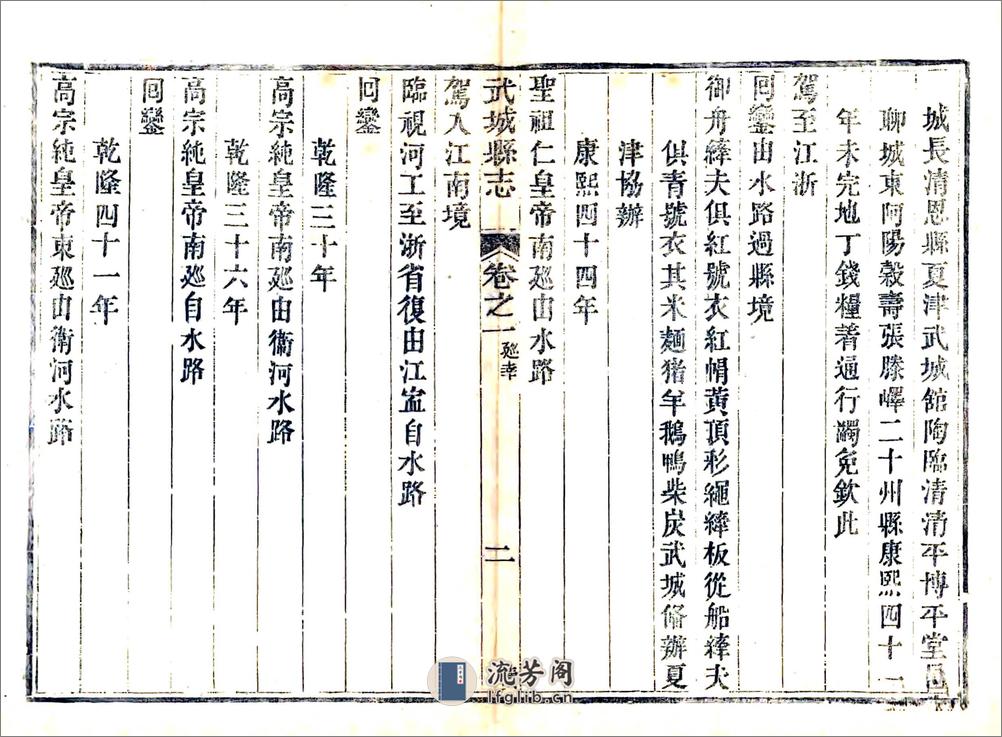 城長清恩縣夏津武城舘陶臨清清平博平堂邑
聊城東阿陽榖壽張滕嶧二十州縣康熙四十一
年未完地丁錢糧著通行蠲免欽此
駕至江浙
回鑾由水路過縣境
御舟縴夫俱紅號衣紅帽黃頂彩繩縴板從船縴夫
俱青號衣其米麵猪羊鵝鴨柴炭武城俻辦夏
津協辦
康熙四十四年
聖祖仁皇帝南廵由水路
武城縣志 卷之一 廵幸 二
駕入江南境
臨視河工至浙省復由江寍自水路
回鑾
乾隆三十年
高宗純皇帝南廵由衞河水路
乾隆三十六年
高宗純皇帝南廵自水路
回鑾
乾隆四十一年
高宗純皇帝東廵由衞河水路
流芳阁
lfglib.cn